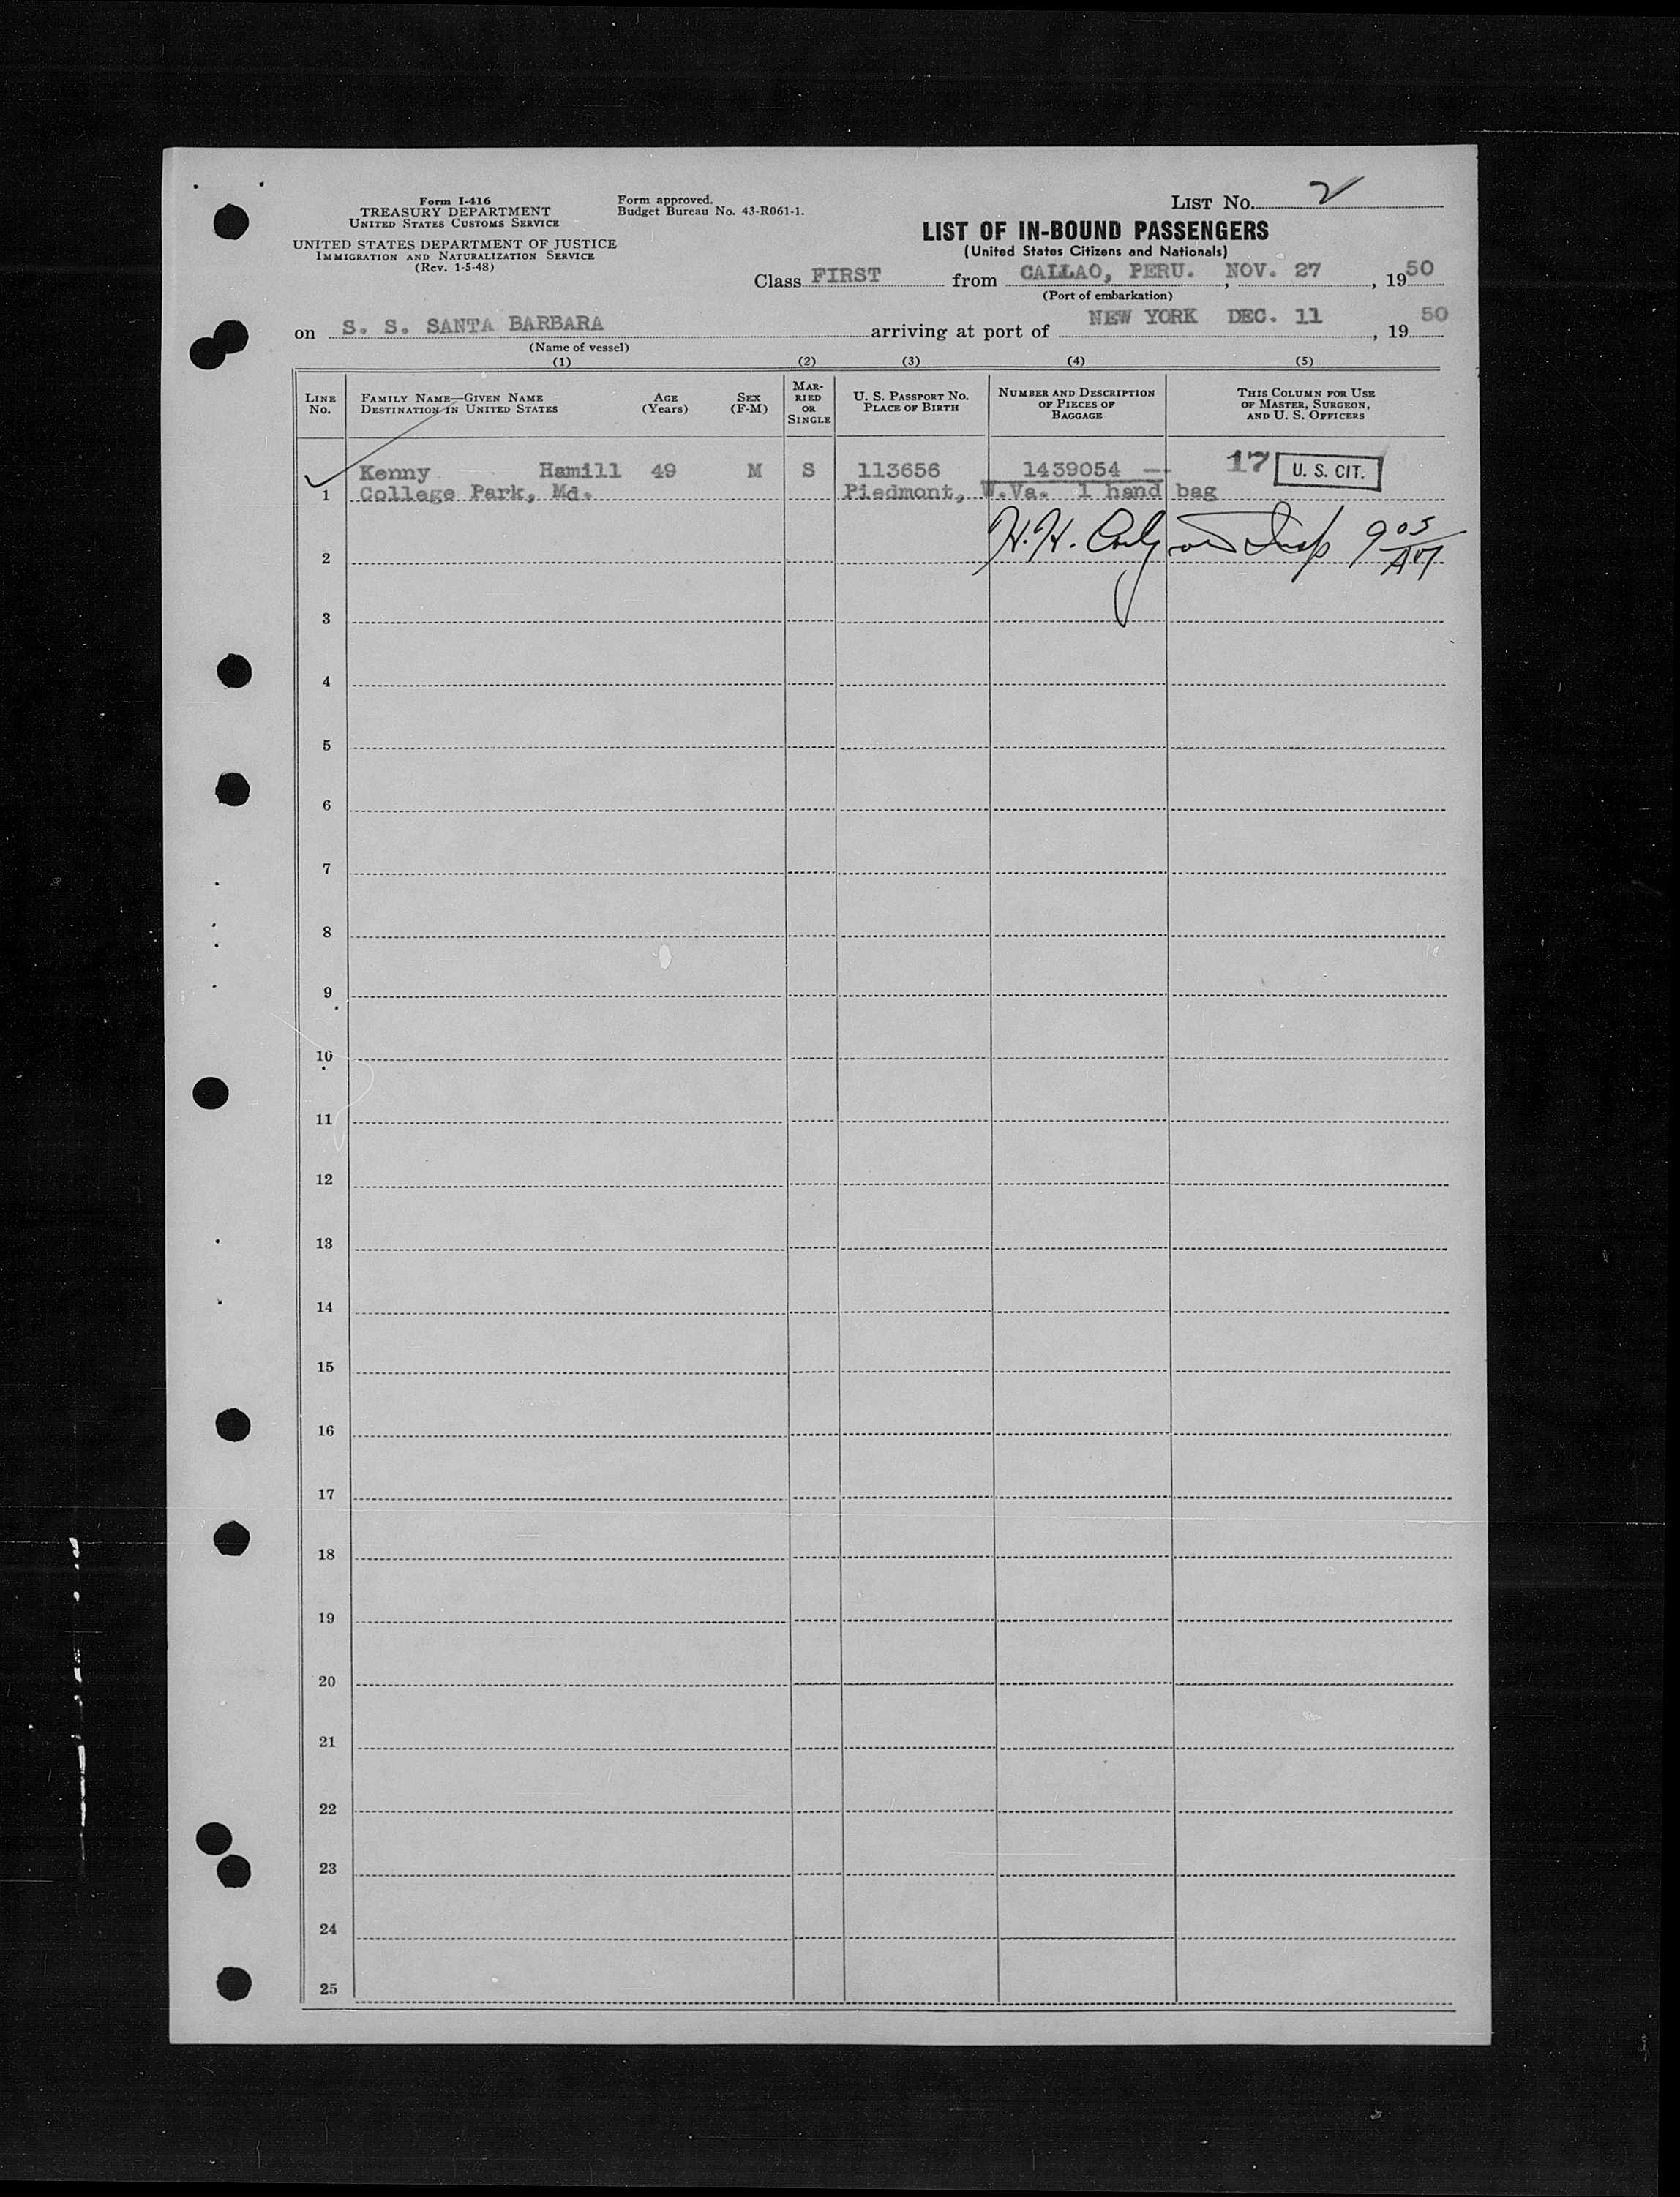 Form I-416
TREASURY DEPARTMENT
UNITED STATES CUSTOMS SERVICE
UNITED STATES DEPARTMENT OF JUSTICE
IMMIGRATION AND NATURALIZATION SERVICE
(Rev. 1-5-48)
Form approved.
Budget Bureau No. 43-R061-1.
LIST No. 2
LIST OF IN-BOUND PASSENGERS
(United States Citizens and Nationals)
Class FIRST from CALLAO, PERU. , NOV. 27 , 1950
(Port of embarkation)
on S. S. SANTA BARBARA arriving at port of NEW YORK DEC. 11 , 19 50
(Name of vessel)
(1) (2) (3) (4) (5)
LINE No. FAMILY NAME—GIVEN NAME DESTINATION IN UNITED STATES AGE (Years) SEX (F-M) MARRIED OR SINGLE U. S. PASSPORT NO. PLACE OF BIRTH NUMBER AND DESCRIPTION OF PIECES OF BAGGAGE THIS COLUMN FOR USE OF MASTER, SURGEON, AND U. S. OFFICERS
Kenny Hamill 49 M S 113656 1439054 -- 17 U. S. CIT.
1 College Park, Md. Piedmont, W.Va. 1 hand bag
H. H. Insp 9 05 AM
2
3
4
5
6
7
8
9
10
11
12
13
14
15
16
17
18
19
20
21
22
23
24
25